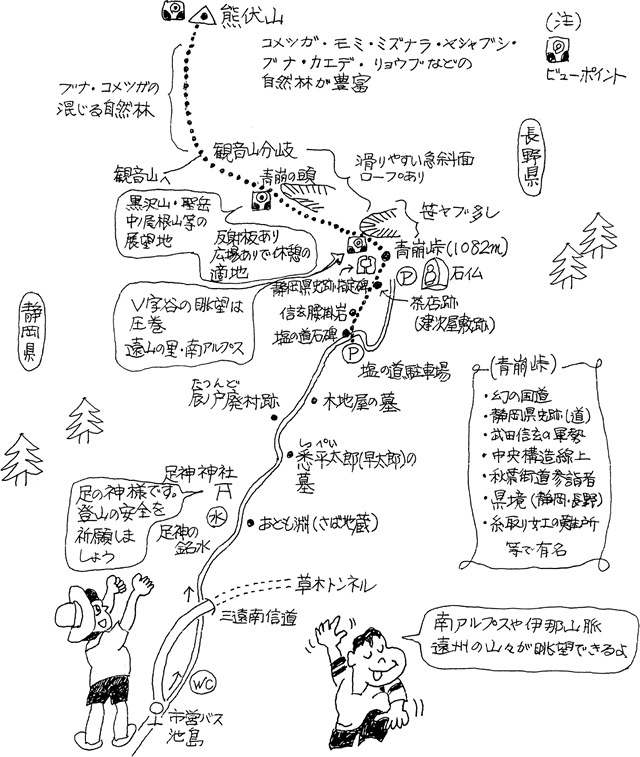 熊伏山
(注)
ビューポイント
コメツガ・モミ・ミズナラ・ヤシャブシ・
ブナ・カエデ・リョウブなどの
自然林が豊富
ブナ・コメツガの
混じる自然林
長野県
観音山分岐
観音山へ
青崩の頭
滑りやすい急斜面
ロープあり
笹ヤブ多し
黒沢山・聖岳
中ノ尾根山等の
展望地
反射板あり
広場ありで休憩の
適地
青崩峠(1082m)
P
石仏
静岡県史跡指定碑
茶店跡
(建次屋敷跡)
信玄腰掛岩
塩の道石碑
V字谷の眺望は
圧巻
遠山の里・南アルプス
静岡県
P
塩の道駐車場
たつんど
辰ノ戸廃村跡
木地屋の墓
(青崩峠)
・幻の国道
・静岡県史跡(道)
・武田信玄の軍勢
・中央構造線上
・秋葉街道参詣者
・県境(静岡・長野)
・糸取り女工の難所
等で有名
しっぺい
悉平太郎(早太郎)の
墓
足神神社
足の神様です。
登山の安全を
祈願しま
しょう
水
足神の
銘水
おとも淵(さば地蔵)
草木トンネル
三遠南信道
WC
市営バス
池島
南アルプスや伊那山脈
遠州の山々が眺望できるよ